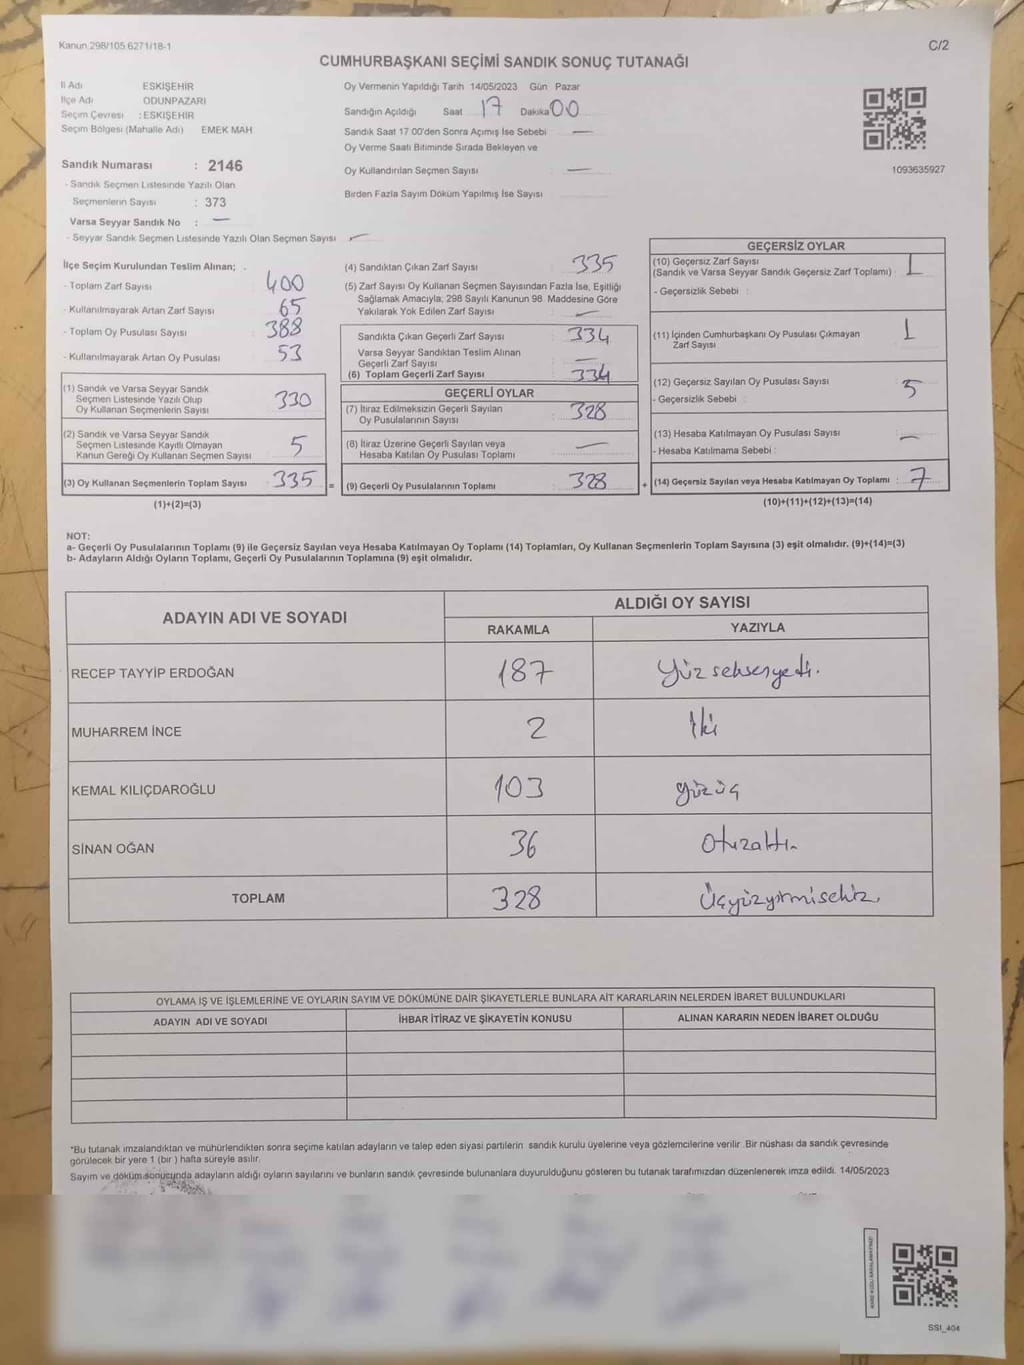 Kanun.298/105.6271/18-1
C/2
CUMHURBAŞKANI SEÇİMİ SANDIK SONUÇ TUTANAĞI
İl Adı ESKİŞEHİR
İlçe Adı ODUNPAZARI
Seçim Çevresi : ESKİŞEHİR
Seçim Bölgesi (Mahalle Adı) EMEK MAH
Sandık Numarası : 2146
- Sandık Seçmen Listesinde Yazılı Olan
Seçmenlerin Sayısı : 373
Varsa Seyyar Sandık No : —
- Seyyar Sandık Seçmen Listesinde Yazılı Olan Seçmen Sayısı —
Oy Vermenin Yapıldığı Tarih 14/05/2023 Gün Pazar
Sandığın Açıldığı Saat 17 Dakika 00
Sandık Saat 17 00'den Sonra Açımış İse Sebebi —
Oy Verme Saati Bitiminde Sırada Bekleyen ve
Oy Kullandırılan Seçmen Sayısı —
Birden Fazla Sayım Döküm Yapılmış İse Sayısı
1093635927
İlçe Seçim Kurulundan Teslim Alınan;
- Toplam Zarf Sayısı 400
- Kullanılmayarak Artan Zarf Sayısı 65
- Toplam Oy Pusulası Sayısı 388
- Kullanılmayarak Artan Oy Pusulası 53
(1) Sandık ve Varsa Seyyar Sandık
Seçmen Listesinde Yazılı Olup
Oy Kullanan Seçmenlerin Sayısı 330
(2) Sandık ve Varsa Seyyar Sandık
Seçmen Listesinde Kayıtlı Olmayan
Kanun Gereği Oy Kullanan Seçmen Sayısı 5
(3) Oy Kullanan Seçmenlerin Toplam Sayısı 335 =
(1)+(2)=(3)
(4) Sandıktan Çıkan Zarf Sayısı 335
(5) Zarf Sayısı Oy Kullanan Seçmen Sayısından Fazla İse, Eşitliği
Sağlamak Amacıyla; 298 Sayılı Kanunun 98. Maddesine Göre
Yakılarak Yok Edilen Zarf Sayısı —
Sandıkta Çıkan Geçerli Zarf Sayısı 334
Varsa Seyyar Sandıktan Teslim Alınan
Geçerli Zarf Sayısı —
(6) Toplam Geçerli Zarf Sayısı 334
GEÇERLİ OYLAR
(7) İtiraz Edilmeksizin Geçerli Sayılan
Oy Pusulalarının Sayısı 328
(8) İtiraz Üzerine Geçerli Sayılan veya
Hesaba Katılan Oy Pusulası Toplamı —
(9) Geçerli Oy Pusulalarının Toplamı 328 +
GEÇERSİZ OYLAR
(10) Geçersiz Zarf Sayısı
(Sandık ve Varsa Seyyar Sandık Geçersiz Zarf Toplamı) 1
- Geçersizlik Sebebi :
(11) İçinden Cumhurbaşkanı Oy Pusulası Çıkmayan
Zarf Sayısı 1
(12) Geçersiz Sayılan Oy Pusulası Sayısı 5
- Geçersizlik Sebebi :
(13) Hesaba Katılmayan Oy Pusulası Sayısı —
- Hesaba Katılmama Sebebi :
(14) Geçersiz Sayılan veya Hesaba Katılmayan Oy Toplamı : 7
(10)+(11)+(12)+(13)=(14)
NOT:
a- Geçerli Oy Pusulalarının Toplamı (9) ile Geçersiz Sayılan veya Hesaba Katılmayan Oy Toplamı (14) Toplamları, Oy Kullanan Seçmenlerin Toplam Sayısına (3) eşit olmalıdır. (9)+(14)=(3)
b- Adayların Aldığı Oyların Toplamı, Geçerli Oy Pusulalarının Toplamına (9) eşit olmalıdır.
ADAYIN ADI VE SOYADI ALDIĞI OY SAYISI
RAKAMLA YAZIYLA
RECEP TAYYİP ERDOĞAN 187 Yüzseksenyedi.
MUHARREM İNCE 2 İki
KEMAL KILIÇDAROĞLU 103 yüzüç
SİNAN OĞAN 36 Otuzaltı
TOPLAM 328 Üçyüzyirmisekiz
OYLAMA İŞ VE İŞLEMLERİNE VE OYLARIN SAYIM VE DÖKÜMÜNE DAİR ŞİKAYETLERLE BUNLARA AİT KARARLARIN NELERDEN İBARET BULUNDUKLARI
ADAYIN ADI VE SOYADI İHBAR İTİRAZ VE ŞİKAYETİN KONUSU ALINAN KARARIN NEDEN İBARET OLDUĞU
*Bu tutanak imzalandıktan ve mühürlendikten sonra seçime katılan adayların ve talep eden siyasi partilerin sandık kurulu üyelerine veya gözlemcilerine verilir. Bir nüshası da sandık çevresinde
görülecek bir yere 1 (bir ) hafta süreyle asılır.
Sayım ve döküm sonucunda adayların aldığı oyların sayılarını ve bunların sandık çevresinde bulunanlara duyurulduğunu gösteren bu tutanak tarafımızdan düzenlenerek imza edildi. 14/05/2023
SSI_404